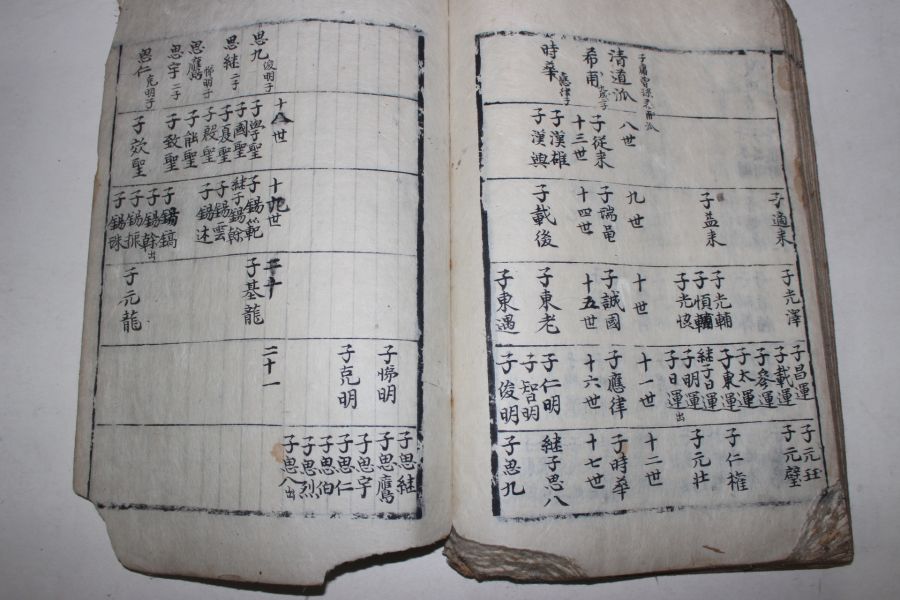 清道派
希甫
時華 應律子
八世
子從來
十三世
子漢雄
子漢興
子適來
子益來
九世
十四世
子載後
子光澤
子光輔
子愼輔
十世
子誠國
十五世
子東老
子東遇
子昌運
子載運
子參運
子太運
子東運
継子日運
子明運
子日運出
十一世
子應律
十六世
子仁明
子智明
子俊明
子元璧
子仁權
子元壯
十二世
子時華
十七世
継子思八
子思九
子悌明
子克明
子思継
子思鷹
子思宇
子思仁
子思伯
子思烈
子思八出
思九 俊明子
思継 二子
思鷹 悌明子
思宇 二子
思仁 克明子
十八世
子學聖
子國聖
子夏聖
子殷聖
子能聖
子致聖
子效聖
十九世
子錫範
継子錫餘
子錫雲
子錫述
子錫鎬
子錫振
子錫珠
二十
子基龍
子元龍
二十一